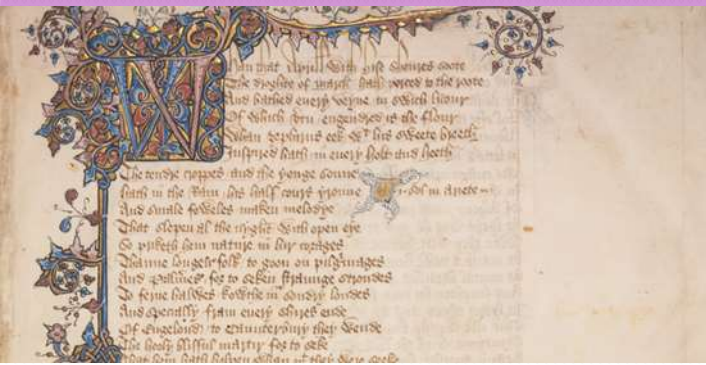 Whan that Aprill with his shoures soote
The droghte of march hath perced to the roote
And bathed euery veyne in swich licour
Of which vtu engendred is the flour
Whan zephirus eek wt his sweete breeth
Inspired hath in euery holt and heeth
The tendre croppes and the yonge sonne
hath in the Ram his half cours yronne .i. sol in ariete
And smale foweles maken melodye
That slepen al the nyght with open eye
So priketh hem nature in hir corages
Thanne longen folk to goon on pilgrimages
And Palmeres for to seken straunge strondes
To ferne halwes kowthe in sondry londes
And specially fram euery shires ende
Of Engelond to Caunterbury they wende
The hooly blisful martir for to seke
That hem hath holpen whan þt they were seeke